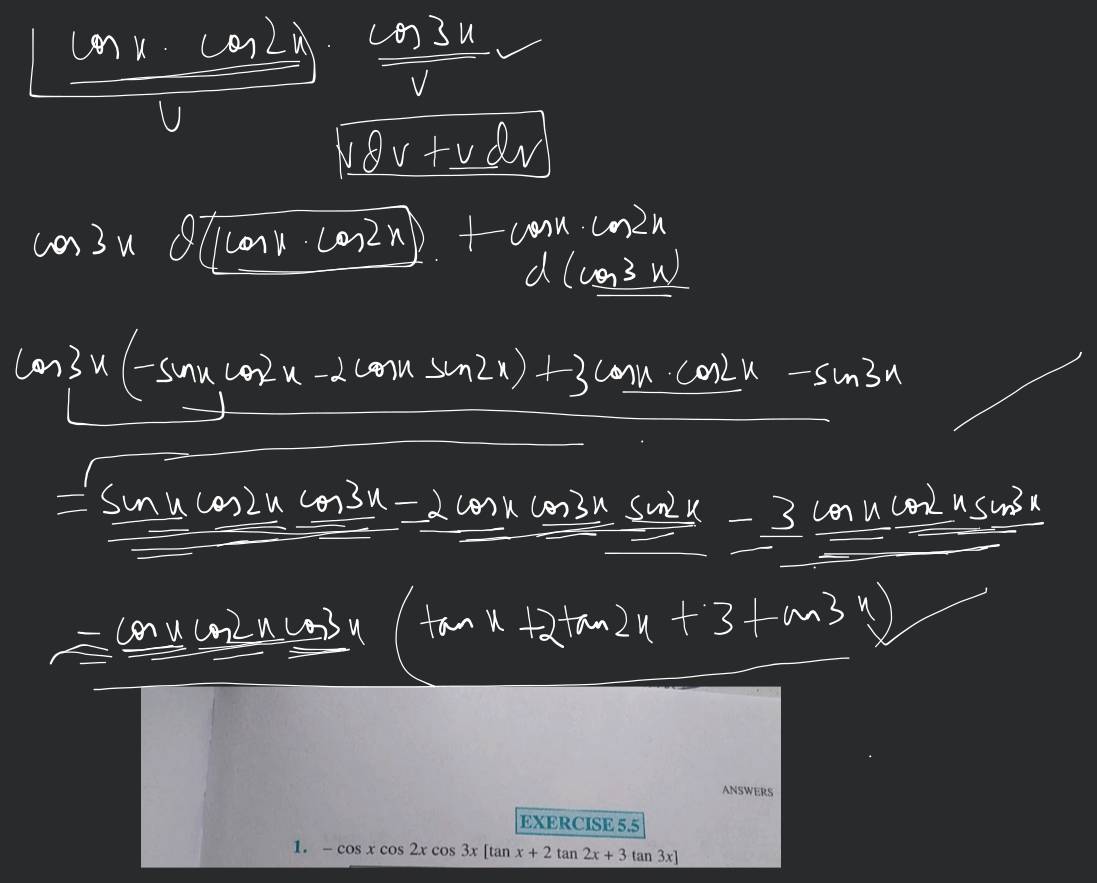 cos x · cos2x · cos3x
U V
vdv + vdv
cos3x d(cosx · cos2x) + cosx · cos2x
d(cos3x)
cos3x (-sinx cos2x - 2cosx sin2x) + 3cosx · cos2x - sin3x
= sinx cos2x cos3x - 2 cosx cos3x sin2x - 3 cosx cos2x sin3x
= cosx cos2x cos3x (tanx + 2tan2x + 3tan3x)
ANSWERS
EXERCISE 5.5
1. – cos x cos 2x cos 3x [tan x + 2 tan 2x + 3 tan 3x]